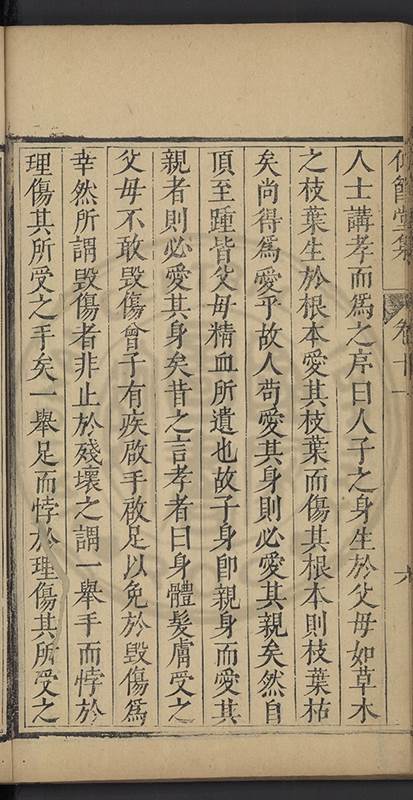 堂集
卷十一
人士講孝而爲之序曰人子之身生於父母如草木
之枝葉生於根本愛其枝葉而傷其根本則枝葉枯
矣尚得爲愛乎故人苟愛其身則必愛其親矣然自
頂至踵皆父母精血所遺也故子身卽親身而愛其
親者則必愛其身矣昔之言孝者曰身體髮膚受之
父母不敢毀傷曾子有疾啟手啟足以免於毀傷爲
幸然所謂毀傷者非止於殘壞之謂一舉手而悖於
理傷其所受之手矣一舉足而悖於理傷其所受之